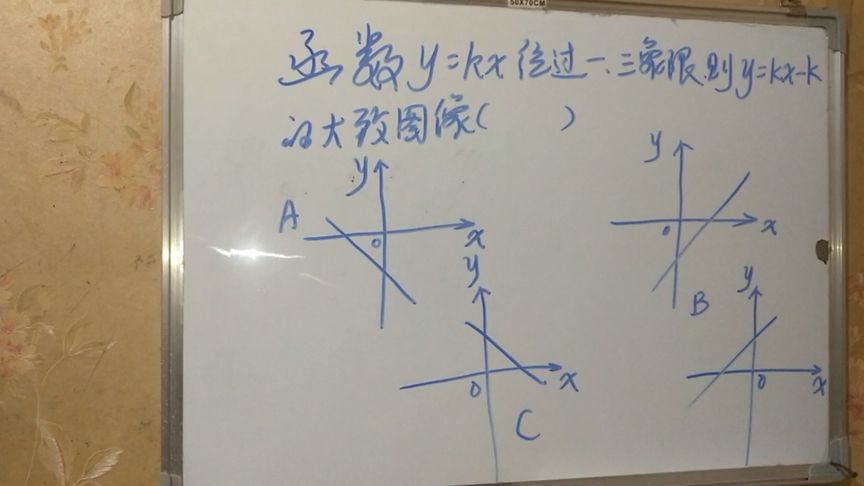 50X70CM
函数y=kx经过一、三象限.则y=kx-k
的大致图像( )
A
y
x
o
y
x
o
B
y
x
o
C
y
x
o